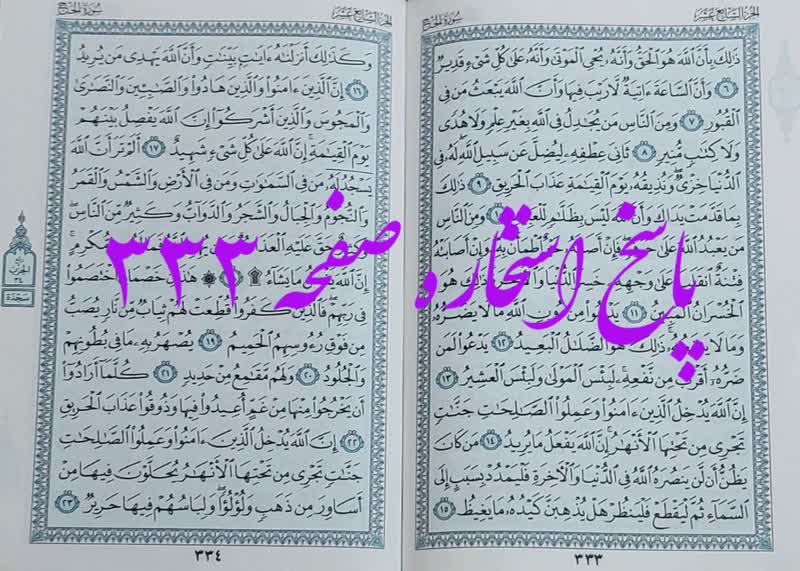 الجزء السابع عشر
سورة الحج
ذَٰلِكَ بِأَنَّ اللَّهَ هُوَ الْحَقُّ وَأَنَّهُ يُحْيِ الْمَوْتَىٰ وَأَنَّهُ عَلَىٰ كُلِّ شَيْءٍ قَدِيرٌ
٦ وَأَنَّ السَّاعَةَ ءَاتِيَةٌ لَّا رَيْبَ فِيهَا وَأَنَّ اللَّهَ يَبْعَثُ مَن فِي
الْقُبُورِ ٧ وَمِنَ النَّاسِ مَن يُجَادِلُ فِي اللَّهِ بِغَيْرِ عِلْمٍ وَلَا هُدًى
وَلَا كِتَابٍ مُّنِيرٍ ٨ ثَانِيَ عِطْفِهِ لِيُضِلَّ عَن سَبِيلِ اللَّهِ لَهُ فِي
الدُّنْيَا خِزْيٌ وَنُذِيقُهُ يَوْمَ الْقِيَامَةِ عَذَابَ الْحَرِيقِ ٩ ذَٰلِكَ
بِمَا قَدَّمَتْ يَدَاكَ وَأَنَّ اللَّهَ لَيْسَ بِظَلَّامٍ لِّلْعَبِيدِ ١٠ وَمِنَ النَّاسِ
مَن يَعْبُدُ اللَّهَ عَلَىٰ حَرْفٍ فَإِنْ أَصَابَهُ خَيْرٌ اطْمَأَنَّ بِهِ وَإِنْ أَصَابَتْهُ
فِتْنَةٌ انقَلَبَ عَلَىٰ وَجْهِهِ خَسِرَ الدُّنْيَا وَالْآخِرَةَ ذَٰلِكَ هُوَ
الْخُسْرَانُ الْمُبِينُ ١١ يَدْعُوا مِن دُونِ اللَّهِ مَا لَا يَضُرُّهُ
وَمَا لَا يَنفَعُهُ ذَٰلِكَ هُوَ الضَّلَالُ الْبَعِيدُ ١٢ يَدْعُوا لَمَن
ضَرُّهُ أَقْرَبُ مِن نَّفْعِهِ لَبِئْسَ الْمَوْلَىٰ وَلَبِئْسَ الْعَشِيرُ ١٣
إِنَّ اللَّهَ يُدْخِلُ الَّذِينَ ءَامَنُوا وَعَمِلُوا الصَّالِحَاتِ جَنَّاتٍ
تَجْرِي مِن تَحْتِهَا الْأَنْهَارُ إِنَّ اللَّهَ يَفْعَلُ مَا يُرِيدُ ١٤ مَن كَانَ
يَظُنُّ أَن لَّن يَنصُرَهُ اللَّهُ فِي الدُّنْيَا وَالْآخِرَةِ فَلْيَمْدُدْ بِسَبَبٍ إِلَى
السَّمَاءِ ثُمَّ لْيَقْطَعْ فَلْيَنظُرْ هَلْ يُذْهِبَنَّ كَيْدُهُ مَا يَغِيظُ ١٥
٣٣٣
الجزء السابع عشر
سورة الحج
وَكَذَٰلِكَ أَنزَلْنَاهُ ءَايَاتٍ بَيِّنَاتٍ وَأَنَّ اللَّهَ يَهْدِي مَن يُرِيدُ
١٦ إِنَّ الَّذِينَ ءَامَنُوا وَالَّذِينَ هَادُوا وَالصَّابِئِينَ وَالنَّصَارَىٰ
وَالْمَجُوسَ وَالَّذِينَ أَشْرَكُوا إِنَّ اللَّهَ يَفْصِلُ بَيْنَهُمْ
يَوْمَ الْقِيَامَةِ إِنَّ اللَّهَ عَلَىٰ كُلِّ شَيْءٍ شَهِيدٌ ١٧ أَلَمْ تَرَ أَنَّ اللَّهَ
يَسْجُدُ لَهُ مَن فِي السَّمَاوَاتِ وَمَن فِي الْأَرْضِ وَالشَّمْسُ وَالْقَمَرُ
وَالنُّجُومُ وَالْجِبَالُ وَالشَّجَرُ وَالدَّوَابُّ وَكَثِيرٌ مِّنَ النَّاسِ
وَكَثِيرٌ حَقَّ عَلَيْهِ الْعَذَابُ وَمَن يُهِنِ اللَّهُ فَمَا لَهُ مِن مُّكْرِمٍ
إِنَّ اللَّهَ يَفْعَلُ مَا يَشَاءُ ۩ ١٨ ۞ هَٰذَانِ خَصْمَانِ اخْتَصَمُوا
فِي رَبِّهِمْ فَالَّذِينَ كَفَرُوا قُطِّعَتْ لَهُمْ ثِيَابٌ مِّن نَّارٍ يُصَبُّ
مِن فَوْقِ رُءُوسِهِمُ الْحَمِيمُ ١٩ يُصْهَرُ بِهِ مَا فِي بُطُونِهِمْ
وَالْجُلُودُ ٢٠ وَلَهُم مَّقَامِعُ مِنْ حَدِيدٍ ٢١ كُلَّمَا أَرَادُوا
أَن يَخْرُجُوا مِنْهَا مِنْ غَمٍّ أُعِيدُوا فِيهَا وَذُوقُوا عَذَابَ الْحَرِيقِ
٢٢ إِنَّ اللَّهَ يُدْخِلُ الَّذِينَ ءَامَنُوا وَعَمِلُوا الصَّالِحَاتِ
جَنَّاتٍ تَجْرِي مِن تَحْتِهَا الْأَنْهَارُ يُحَلَّوْنَ فِيهَا مِنْ
أَسَاوِرَ مِن ذَهَبٍ وَلُؤْلُؤًا وَلِبَاسُهُمْ فِيهَا حَرِيرٌ ٢٣
ربع
الحزب
٣٤
سجدة
٣٣٤
پاسخ استخاره صفحه ٣٣٣